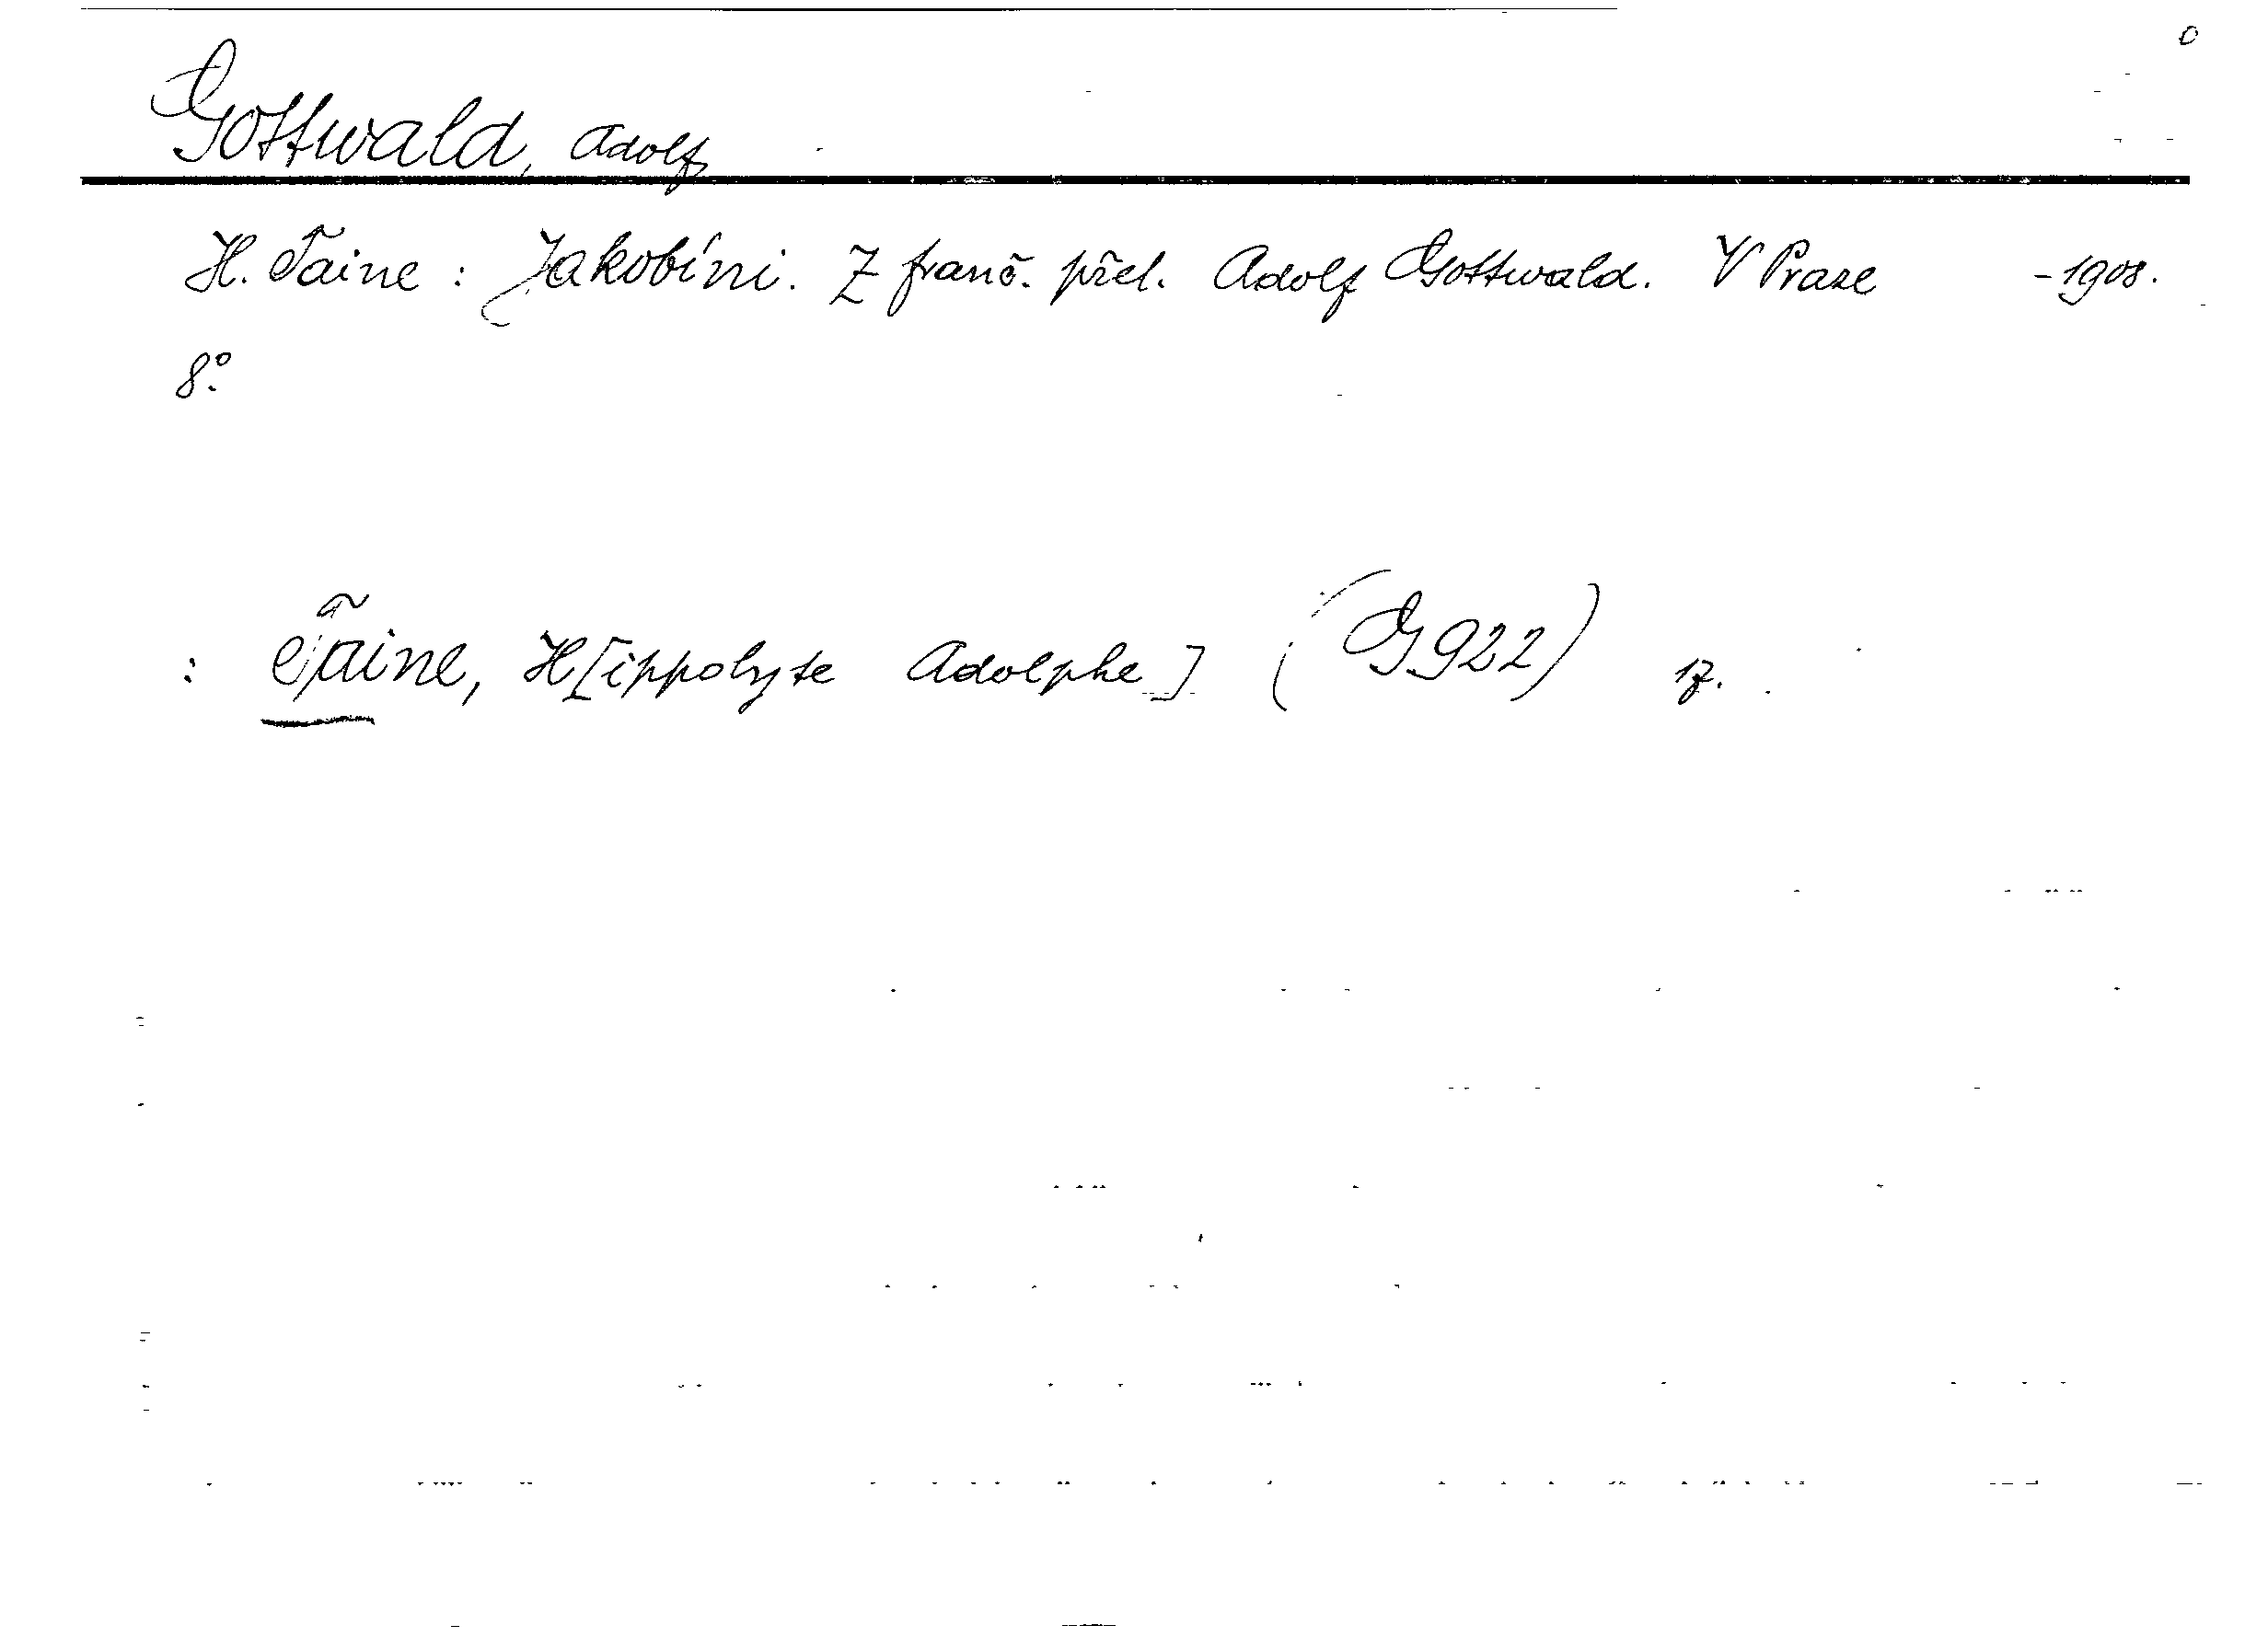 Gottwald, Adolf
H. Taine: Jakobíni. Z franc. přel. Adolf Gottwald. V Praze -1908.
8°.
: Taine, H[ippolyte Adolphe] (G 922)